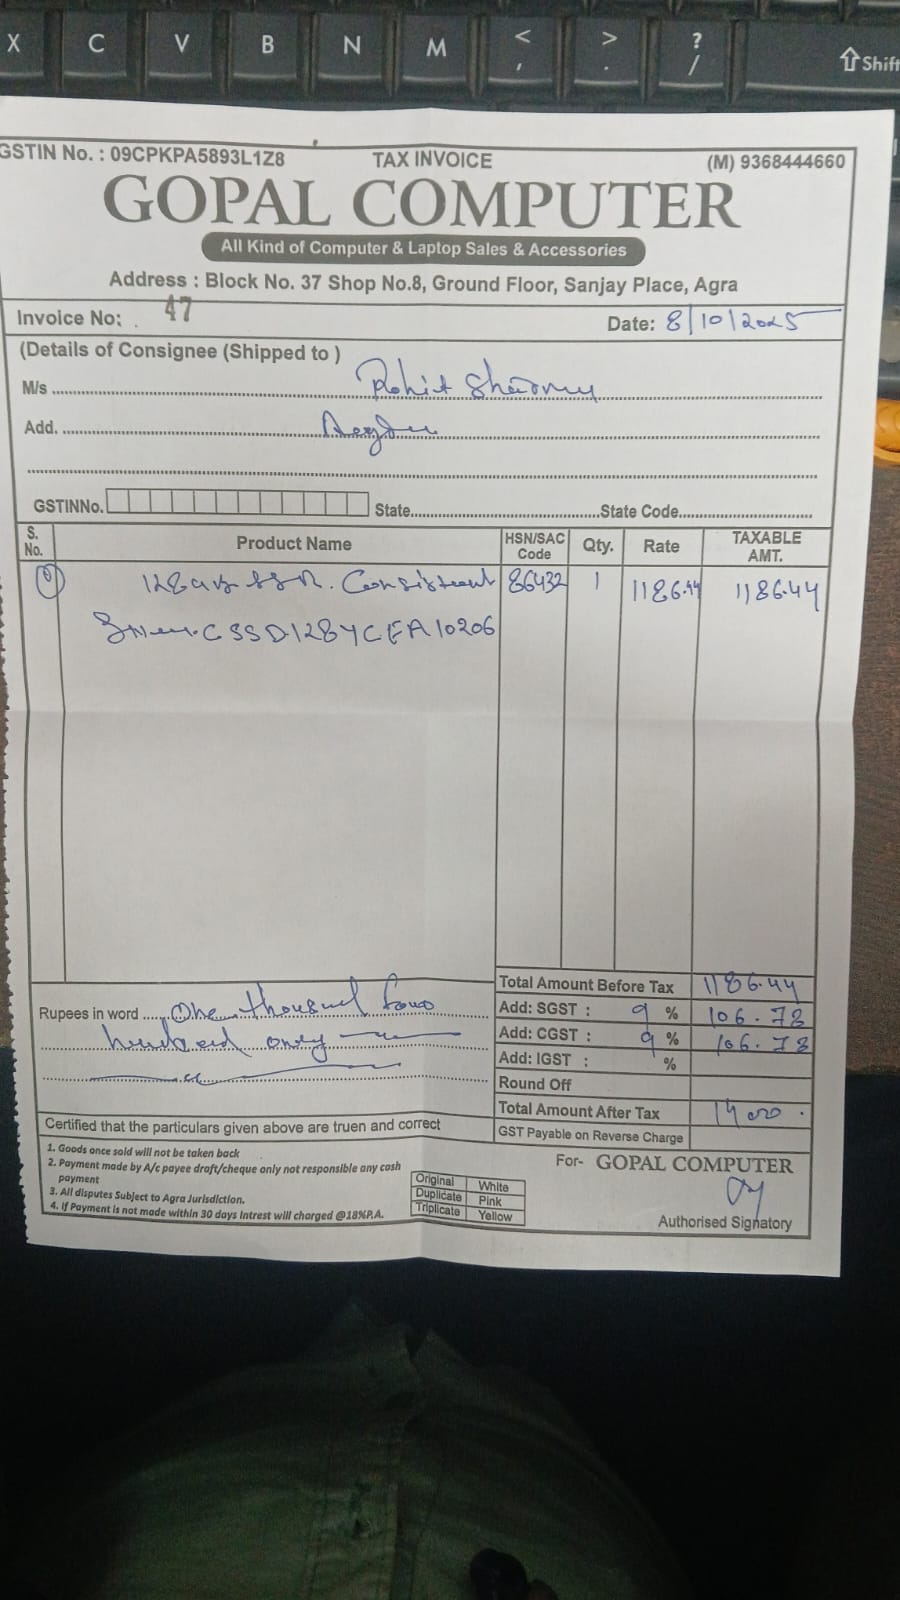 X C V B N M < , > . ? / ⇧ Shift
GSTIN No. : 09CPKPA5893L1Z8 TAX INVOICE (M) 9368444660
GOPAL COMPUTER
All Kind of Computer & Laptop Sales & Accessories
Address : Block No. 37 Shop No.8, Ground Floor, Sanjay Place, Agra
Invoice No: 47 Date: 8/10/2025
(Details of Consignee (Shipped to )
M/s Rohit Sharma
Add.
GSTINNo. State State Code
S. No. Product Name HSN/SAC Code Qty. Rate TAXABLE AMT.
1 128 Consistent 86432 1 1186.44 1186.44
CSSD128YCEA10206
Total Amount Before Tax 1186.44
Rupees in word One thousand four
hundred only
Add: SGST : 9 % 106.78
Add: CGST : 9 % 106.78
Add: IGST : %
Round Off
Total Amount After Tax
GST Payable on Reverse Charge
Certified that the particulars given above are truen and correct
1. Goods once sold will not be taken back
2. Payment made by A/c payee draft/cheque only not responsible any cash
payment
3. All disputes Subject to Agra Jurisdiction.
4. If Payment is not made within 30 days Intrest will charged @18%P.A.
Original White
Duplicate Pink
Triplicate Yellow
For- GOPAL COMPUTER
Authorised Signatory